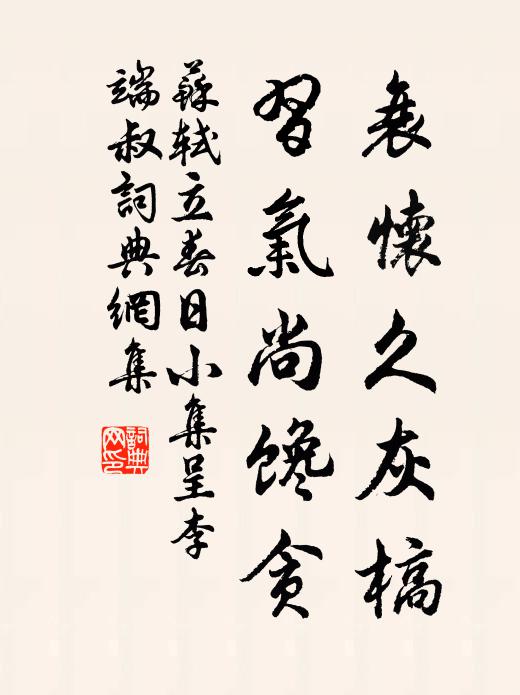 衰懷久灰槁
習氣尚馋貪
蘇軾立春日小集呈李
端叔詞典網集
詞典
网印